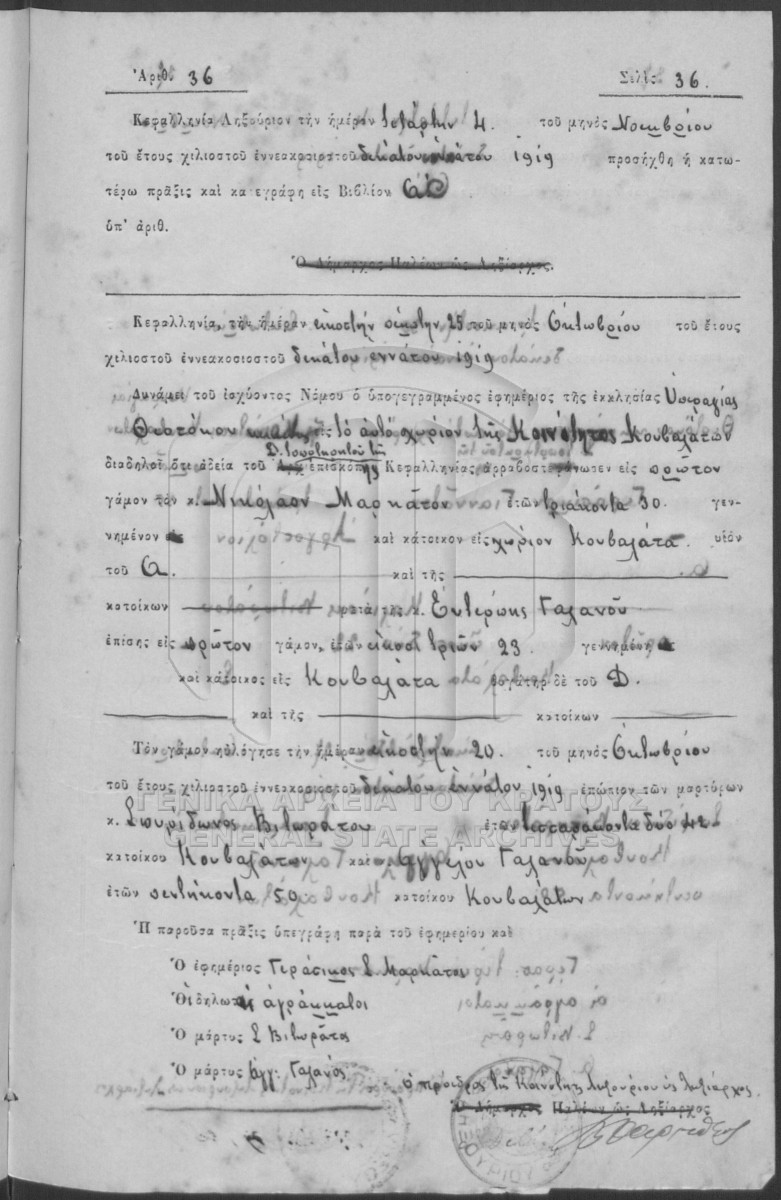 Ἀριθ. 36 Σελὶς 36.
Κεφαλληνία Ληξούριον τὴν ἡμέραν τετάρτην 4. τοῦ μηνὸς Νοεμβρίου
τοῦ ἔτους χιλιοστοῦ ἐννεακοσιοστοῦ δεκάτου ἐννάτου 1919 προσήχθη ἡ κατω-
τέρω πρᾶξις καὶ κα εγράφη εἰς Βιβλίον
ὑπ' ἀριθ.
Ὁ Δήμαρχος Παλέων ὡς Ληξίαρχος.
Κεφαλληνία, τὴν ἡμέραν εἰκοστὴν πέμπτην 25 τοῦ μηνὸς Ὀκτωβρίου τοῦ ἔτους
χιλιοστοῦ ἐννεακοσιοστοῦ δεκάτου εννάτου 1919
Δυνάμει τοῦ ἰσχύοντος Νόμου ὁ ὑπογεγραμμένος ἐφημέριος τῆς ἐκκλησίας Ὑπεραγίας
Θεοτόκου εἰς τὸ αὐτὸ χωρίον τῆς Κοινότητος Κουβαλάτων
διαδηλοῖ ὅτι ἀδεία τοῦ ἐπισκοπῆς Κεφαλληνίας ἀρραβοστεφάνωσεν εἰς πρῶτον
γάμον τὸν κ. Νικόλαον Μαρκάτον ἐτῶν τριάκοντα 30. γεν-
νημένον καὶ κάτοικον εἰς χωρίον Κουβαλάτα υἱὸν
τοῦ Α. καὶ τῆς
κατοίκων μετὰ τῆς κ. Εὐτέρπης Γαλανοῦ
ἐπίσης εἰς πρῶτον γάμον, ἐτῶν εἴκοσι τριῶν 23. γεννημένη
καὶ κάτοικος εἰς Κουβαλάτα θυγάτηρ δὲ τοῦ Δ.
καὶ τῆς κατοίκων
Τὸν γάμον ηὐλόγησε τὴν ἡμέραν εἰκοστὴν 20. τοῦ μηνὸς Ὀκτωβρίου
τοῦ ἔτους χιλιοστοῦ ἐννεακοσιοστοῦ δεκάτου ἐννάτου 1919 ἐπώπιον τῶν μαρτύρων
ΓΕΝΙΚΑ ΑΡΧΕΙΑ ΤΟΥ ΚΡΑΤΟΥΣ
κ. Σπυρίδωνος Βιτωράτου ἐτῶν τεσσαράκοντα δύο 42
GENERAL STATE ARCHIVES
κατοίκου Κουβαλάτων καὶ Ἀγγέλου Γαλανοῦ
ἐτῶν πεντήκοντα 50 κατοίκου Κουβαλάτων
Ἡ παροῦσα πρᾶξις ὑπεγράφη παρὰ τοῦ ἐφημερίου καὶ
Ὁ ἐφημέριος Γεράσιμος Σ. Μαρκάτος
Οἱ δηλωταὶ ἀγράμματοι
Ὁ μάρτυς Σ Βιτωράτος
Ὁ μάρτυς Ἀγγ: Γαλανός
ὁ πρόεδρος τῆς Κοινότητος Ληξουρίου ὡς Ληξίαρχος.
Ὁ Δήμαρχος Παλέων ὡς Ληξίαρχος